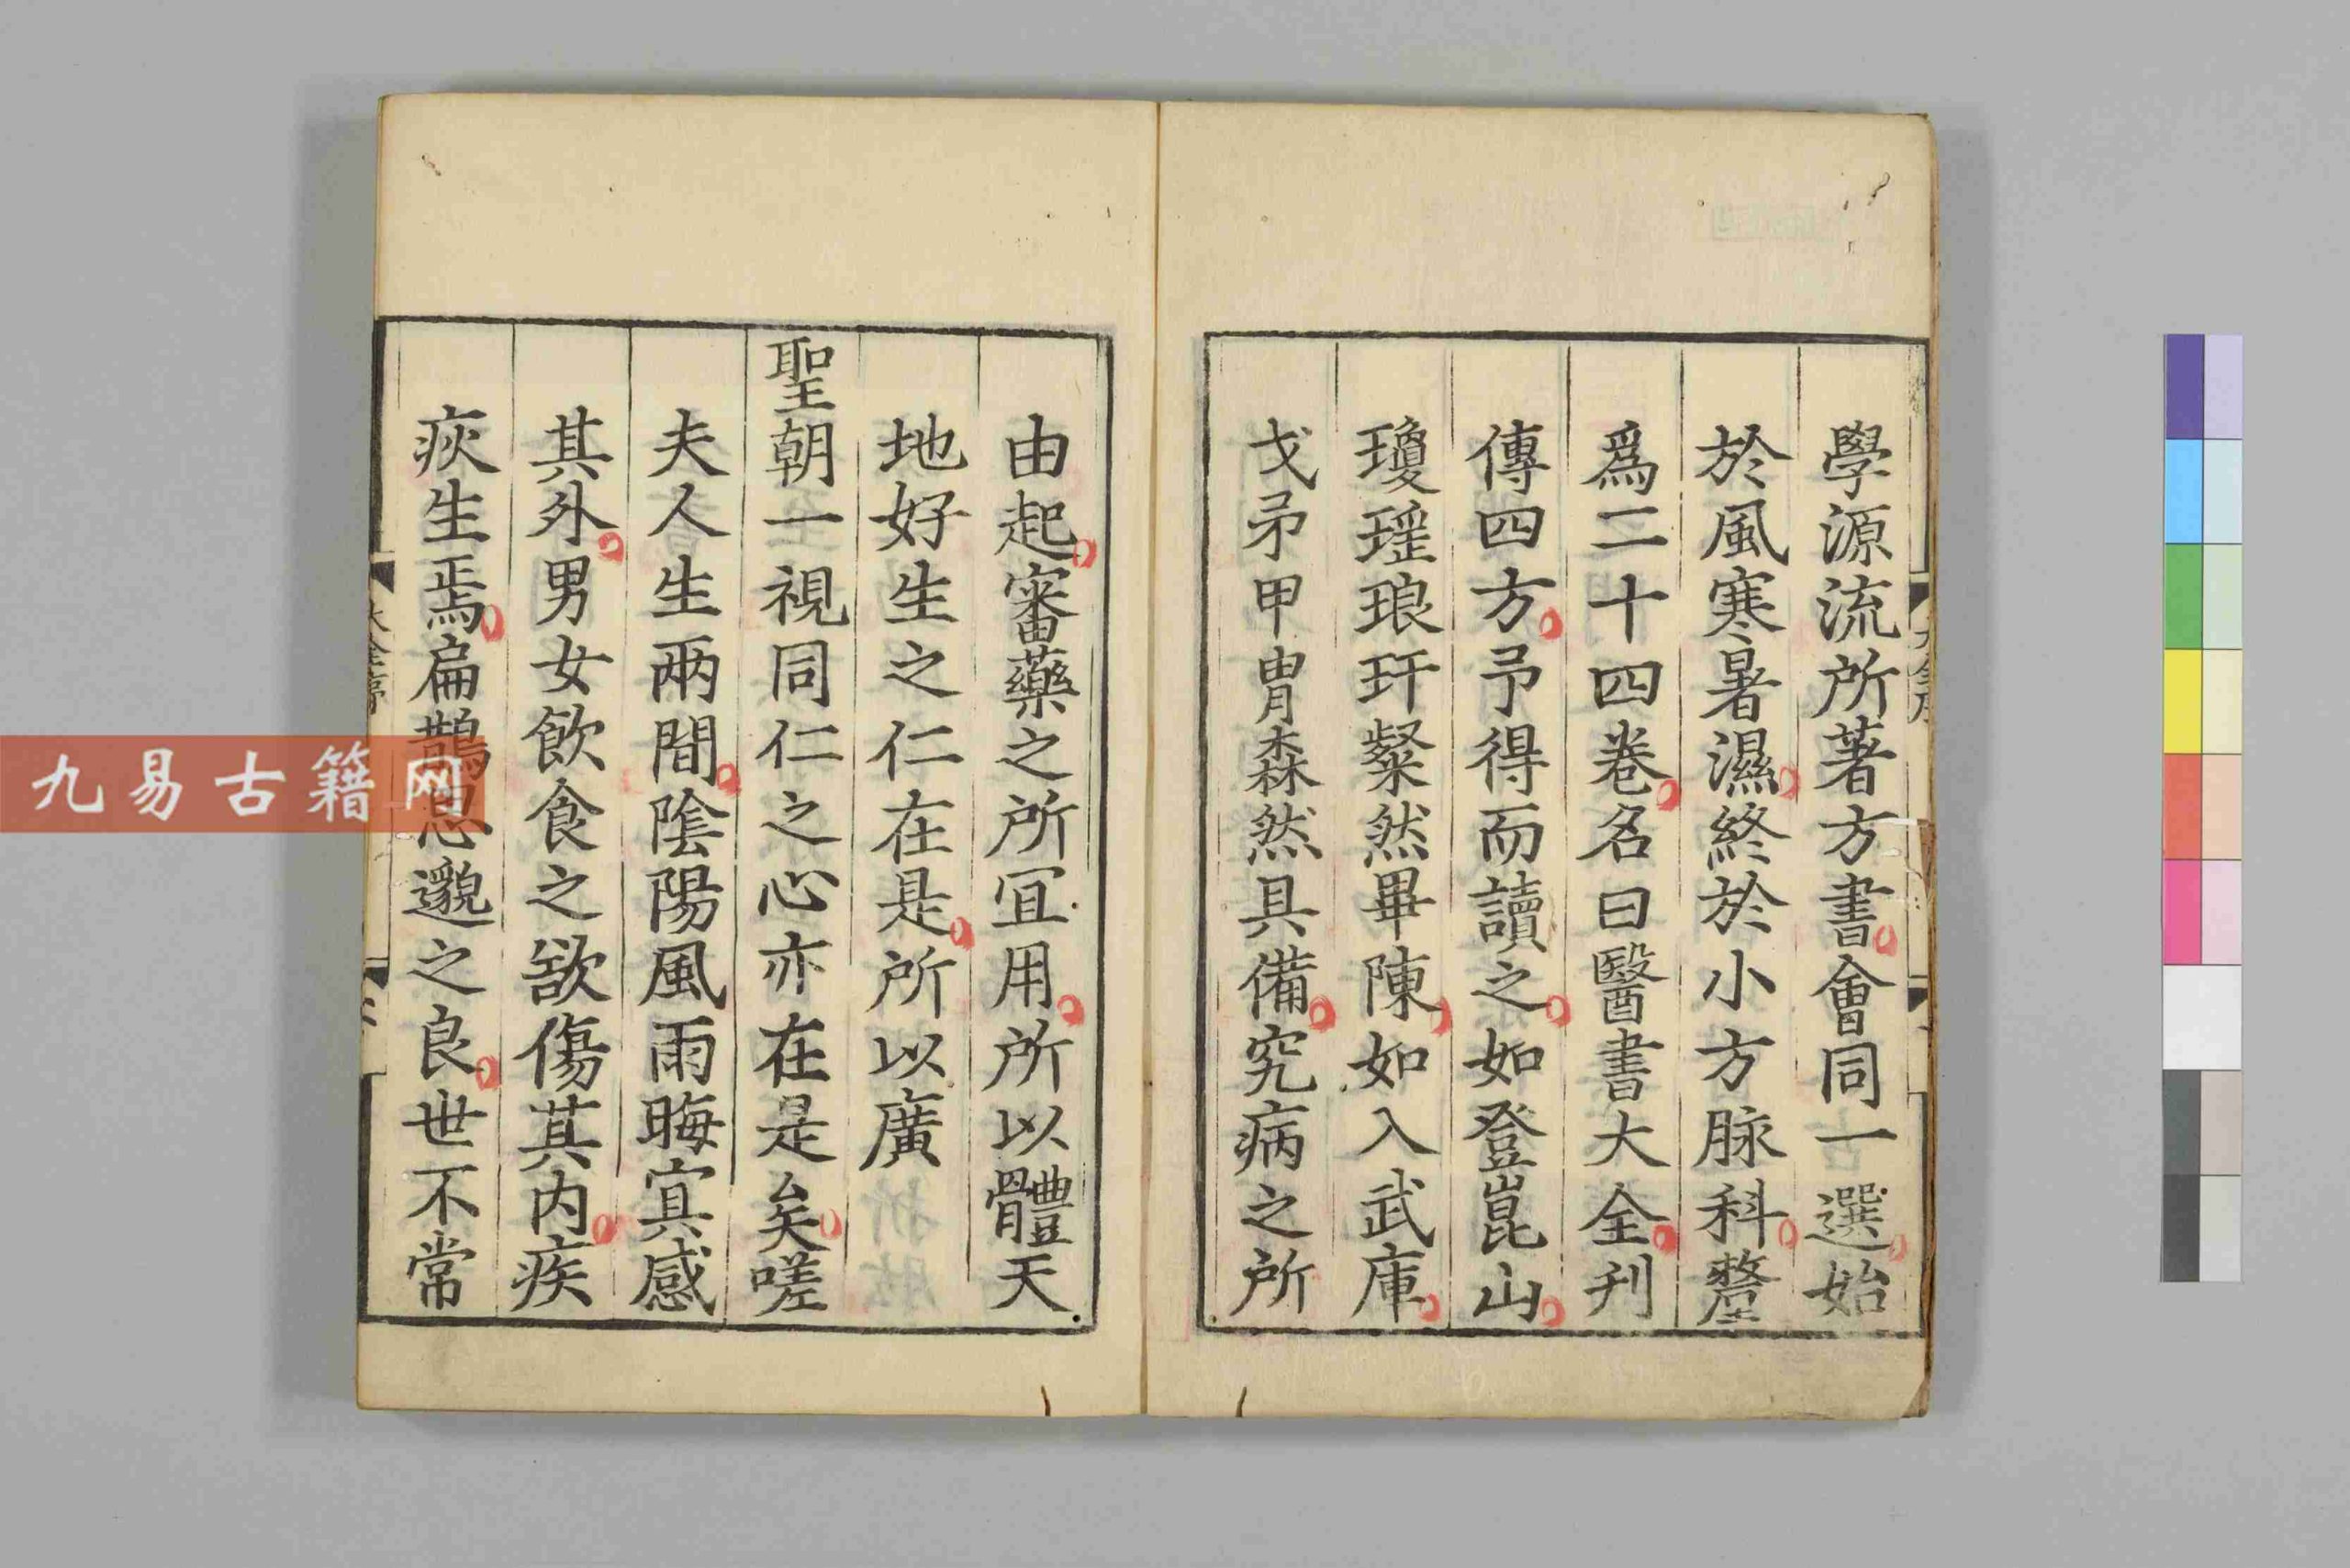 學源流所著方書會同一選始
於風寒暑濕終於小方脉科釐
爲二十四巻名曰醫書大全刋
傳四方予得而讀之如登崑山
瓊瑶琅玕粲然畢陳如入武庫
戈矛甲冑森然具備究病之所
由起審藥之所冝用所以體天
地好生之仁在是所以廣
聖朝一視同仁之心亦在是矣嗟
夫人生兩間隂陽風雨晦寘感
其外男女飲食之欲傷其内疾
疢生焉扁鵲思邈之良世不常
大全序
九易古籍网